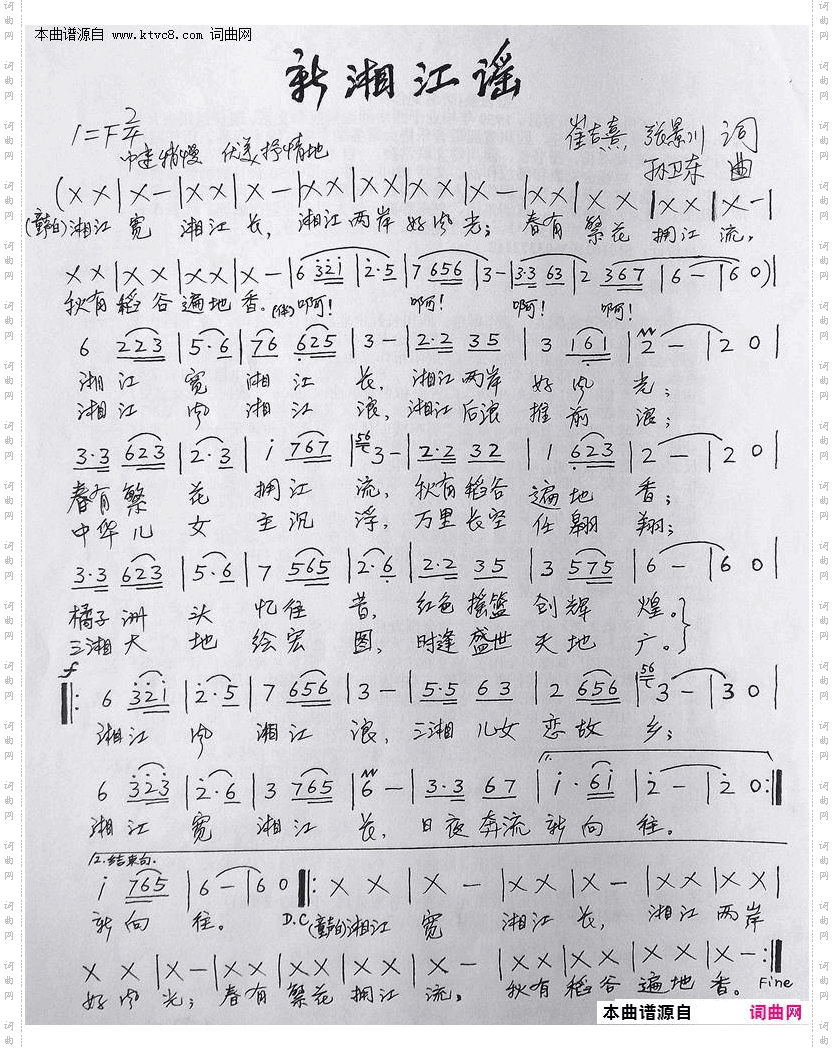 本曲谱源自 www.ktvc8.com 词曲网
新湘江谣
1=F 2/4
中速稍慢 优美抒情地
崔吉熹, 张景川 词
孙卫东 曲
(X X | X — | X X | X — | X X | X X | X X | X — | X X | X X | X X | X — |
(童声白) 湘江 宽 湘江 长, 湘江 两岸 好风 光; 春有 繁花 拥江 流,
X X | X X | X X | X — | 6 321 | 2·5 | 7 656 | 3 — | 3·3 63 | 2 367 | 6 — | 6 0) |
秋有 稻谷 遍地 香。(伴) 啊! 啊! 啊! 啊!
6 223 | 5·6 | 76 625 | 3 — | 2·2 35 | 3 161 | 2 — | 2 0 |
湘江 宽 湘江 长, 湘江两岸 好风 光;
湘江 风 湘江 浪, 湘江后浪 推前 浪;
3·3 623 | 2·3 | i 767 | 56 3 — | 2·2 32 | 1 623 | 2 — | 2 0 |
春有繁 花 拥江 流, 秋有稻谷 遍地 香;
中华儿 女 主沉 浮, 万里长空 任翱 翔;
3·3 623 | 5·6 | 7 565 | 2·6 | 2·2 35 | 3 575 | 6 — | 6 0 |
橘子洲 头 忆往 昔, 红色摇篮 创辉 煌。
三湘大 地 绘宏 图, 时逢盛世 天地 广。
f
‖: 6 321 | 2·5 | 7 656 | 3 — | 5·5 63 | 2 656 | 56 3 — | 3 0 |
湘江 风 湘江 浪, 三湘儿女 恋故 乡;
6 323 | 2·6 | 3 765 | 6 — | 3·3 67 | i·6i | 2 — | 2 0 :‖
湘江 宽 湘江 长, 日夜奔流 新向 往。
12.结束句.
i 765 | 6 — | 6 0 ‖: X X | X — | X X | X — | X X | X X |
新向 往。 D.C (童声白) 湘江 宽 湘江 长, 湘江 两岸
X X | X — | X X | X X | X X | X — | X X | X X | X X | X — :‖
好风 光; 春有 繁花 拥江 流, 秋有 稻谷 遍地 香。 Fine
本曲谱源自 词曲网